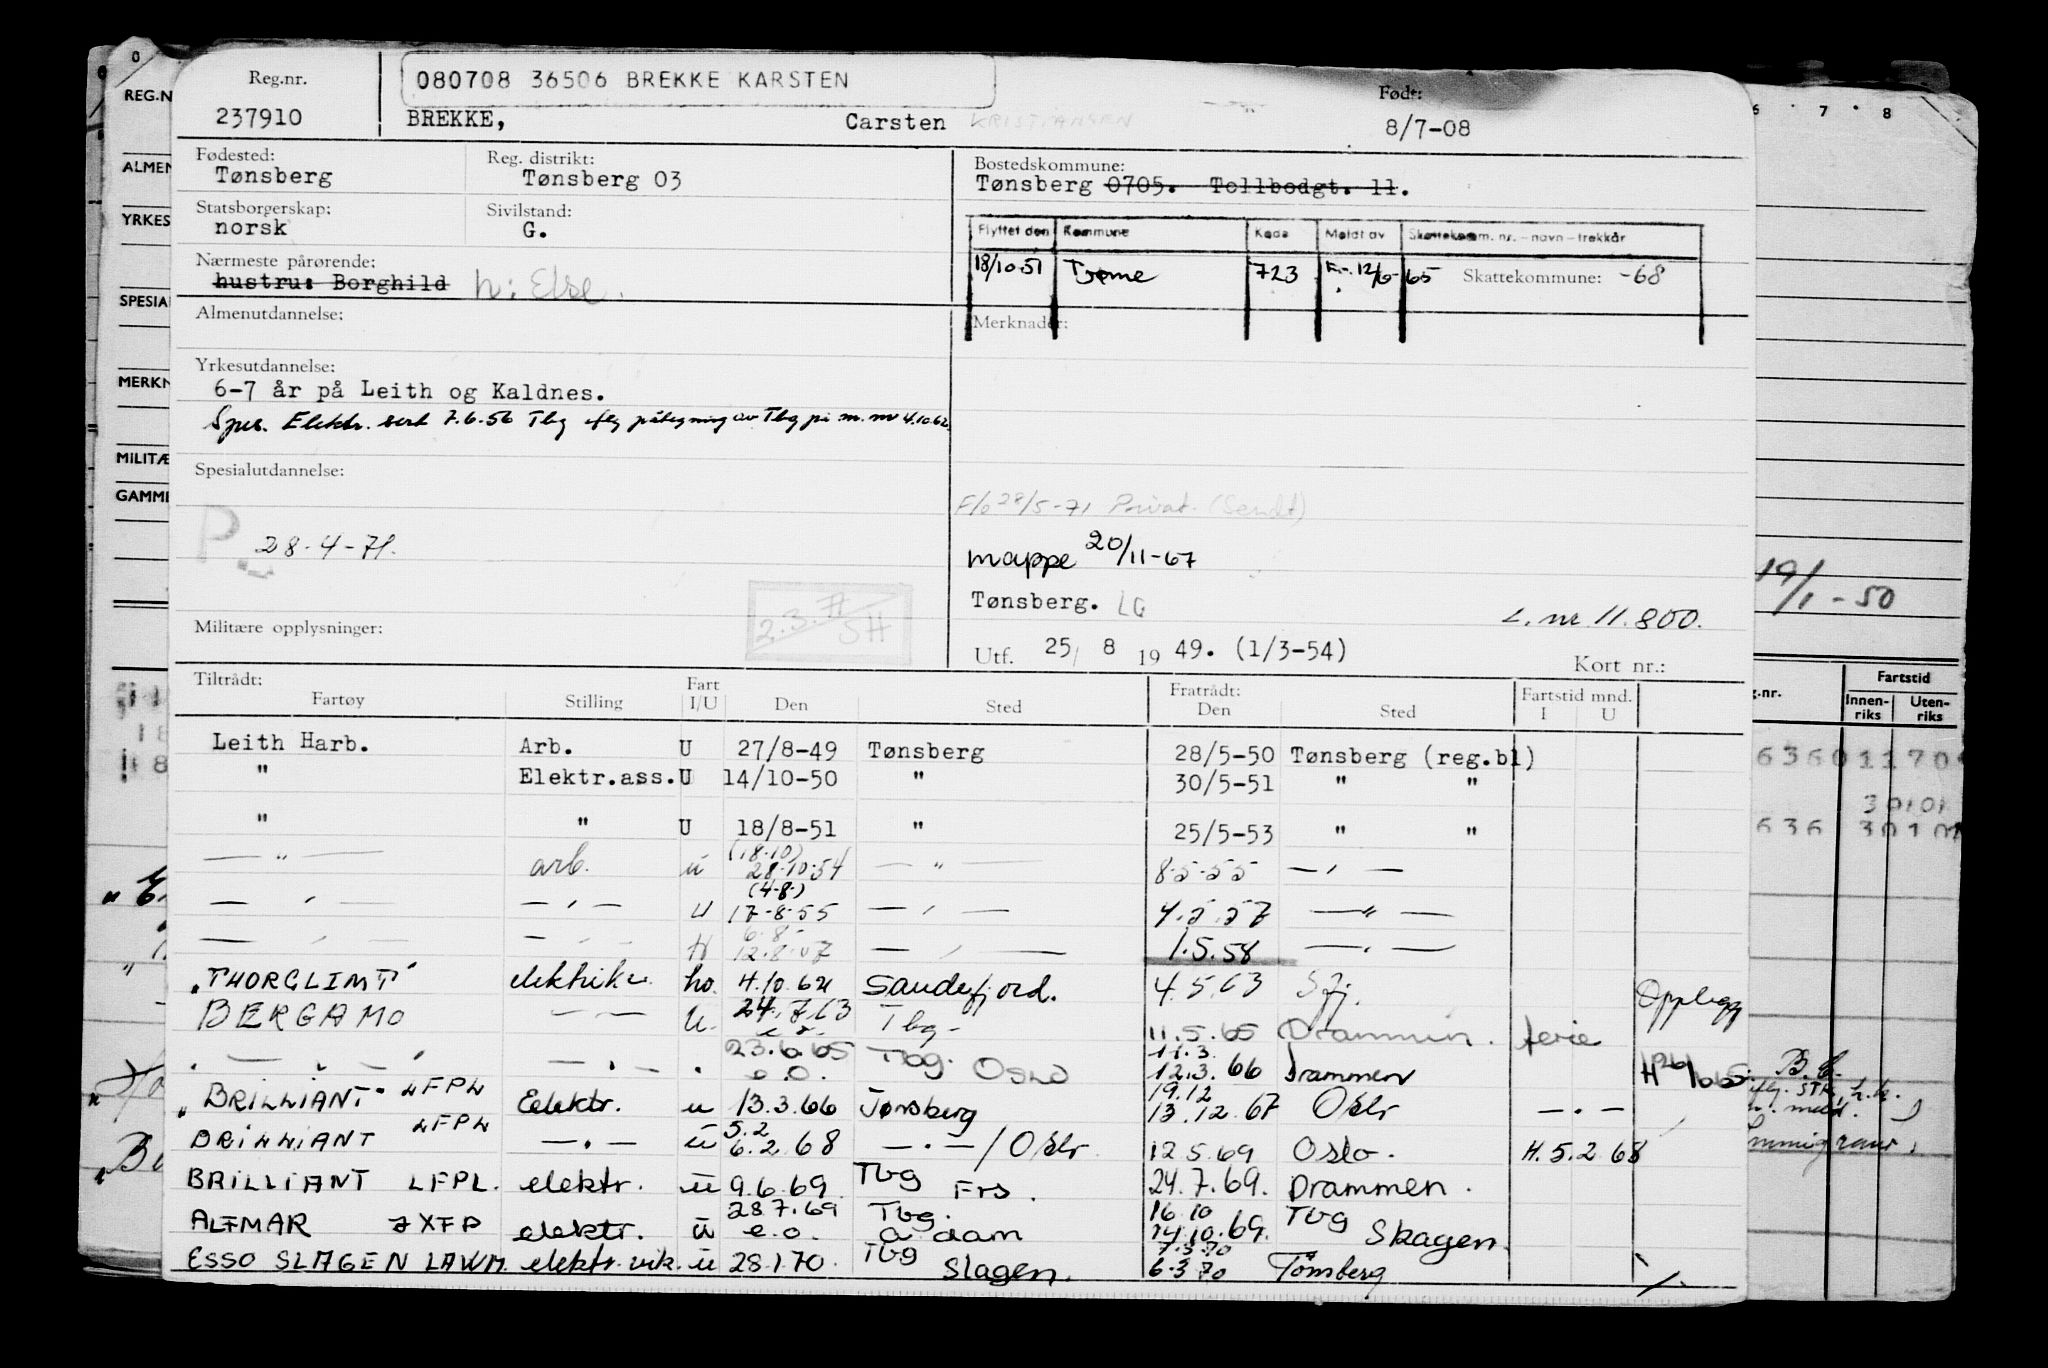 Reg.nr.
237910
080708 36506 BREKKE KARSTEN
BREKKE, Carsten KRISTIANSEN
Født:
8/7-08
Fødested:
Tønsberg
Reg. distrikt:
Tønsberg 03
Bostedskommune:
Tønsberg 0705. Tollbodgt. 11.
Statsborgerskap:
norsk
Sivilstand:
G.
Flyttet den Kommune Kode Meldt av Skattekomm. nr. - navn - trekkår
18/10-51 Tjøme 723 F.-. 12/6-65 Skattekommune: -68
Nærmeste pårørende:
hustru: Borghild h: Else.
Almenutdannelse:
Merknader:
Yrkesutdannelse:
6-7 år på Leith og Kaldnes.
Elektr. sert 7.6.56 Tbg påtegning av Tbg 4.10.62.
Spesialutdannelse:
P 28-4-71.
F/o 28/5-71 Privat. (Sendt)
mappe 20/11-67
Tønsberg. LG
L. nr 11.800.
2.3.71 SH
Militære opplysninger:
Utf. 25/ 8 19 49. (1/3-54)
Kort nr.:
Tiltrådt: Fart Fratrådt: Fartstid mnd.
Fartøy Stilling I/U Den Sted Den Sted I U
Leith Harb. Arb. U 27/8-49 Tønsberg 28/5-50 Tønsberg (reg.bl)
" Elektr.ass. U 14/10-50 " 30/5-51 " "
" " U 18/8-51 " 25/5-53 " "
— " — arb. u (18.10) 28.10.54 — " 8-5-55 — " —
— " — — " — u (4-8-) 17-8-55 — " — 4.5.57 — " —
— " — — " — 6.8- 12.8.57 — " — 1.5.58 — " —
"THORGLIMT" elektriker ho. 4.10.62 Sandefjord. 4.5.63 Sfj. Opplegg
BERGAMO — " — U. 24.7.63 Tbg- 11.5.65 Drammen. ferie
— " — — " — 23.6.65 e.o. Tbg. Oslo 11.3. 12.3.66 Drammen
"BRILLIANT" LFPL Elektr. u 13.3.66 Tønsberg 19.12 13.12.67 Oslo — " —
BRILLIANT LFPL — " — u 5.2 6.2.68 — " — / Oslo 12.5.69 Oslo. H. 5.2 68
BRILLIANT LFPL. elektr. u 9.6.69 Tbg Frs. 24.7.69. Drammen.
ALTMAR JXFP elektr. u 28.7.69 e.o. Tbg. a dam 16.10 14.10.69. Tbg Skagen.
ESSO SLAGEN LAWM. elektr. vik. u 28.1.70. Tbg Slagen. 7.3.70 6.3.70 Tönsberg
REG.N
ALMEN
YRKES
SPESIAL
MERKN
MILITÆ
GAMME
6 7 8
19/1-50
g.nr.
Fartstid
Innen-riks Uten-riks